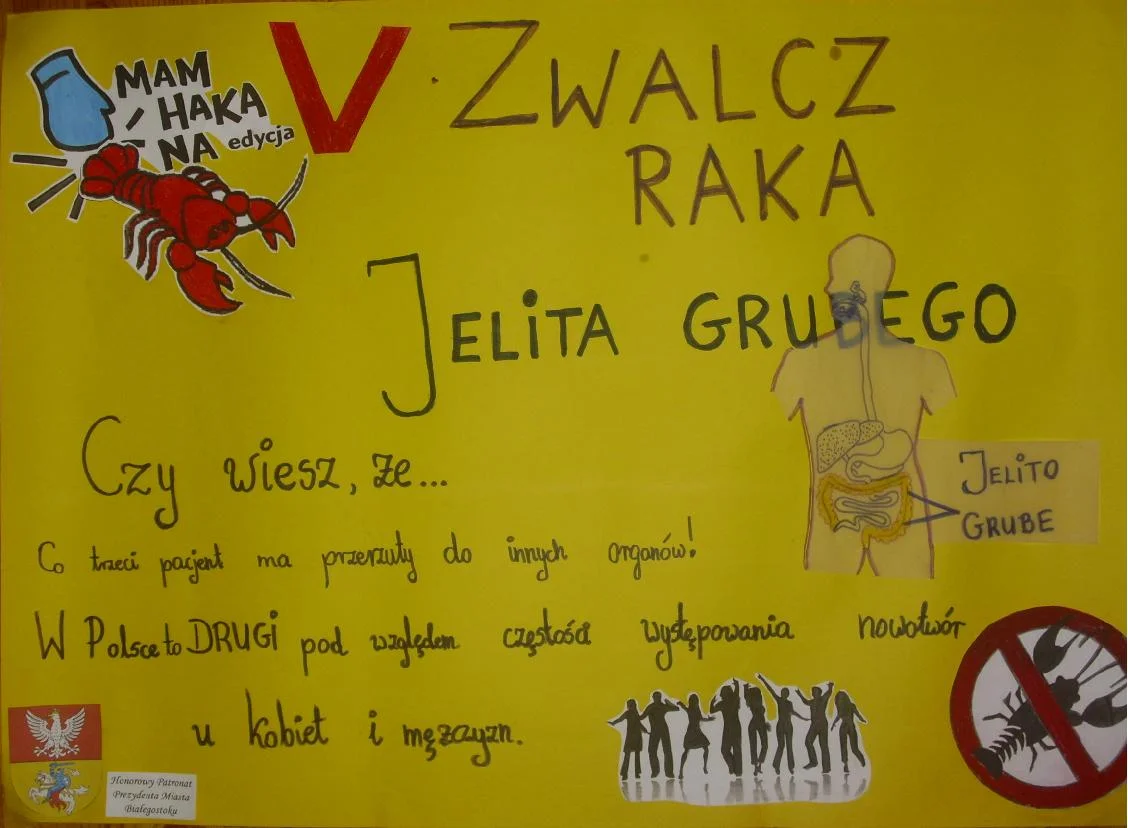 MAM
HAKA
NA edycja V
ZWALCZ
RAKA
JELITA GRUBEGO
JELITO
GRUBE
Czy wiesz, że...
Co trzeci pacjent ma przerzuty do innych organów!
W Polsce to DRUGI pod względem częstości występowania nowotwór
u kobiet i mężczyzn.
Honorowy Patronat
Prezydenta Miasta
Białegostoku